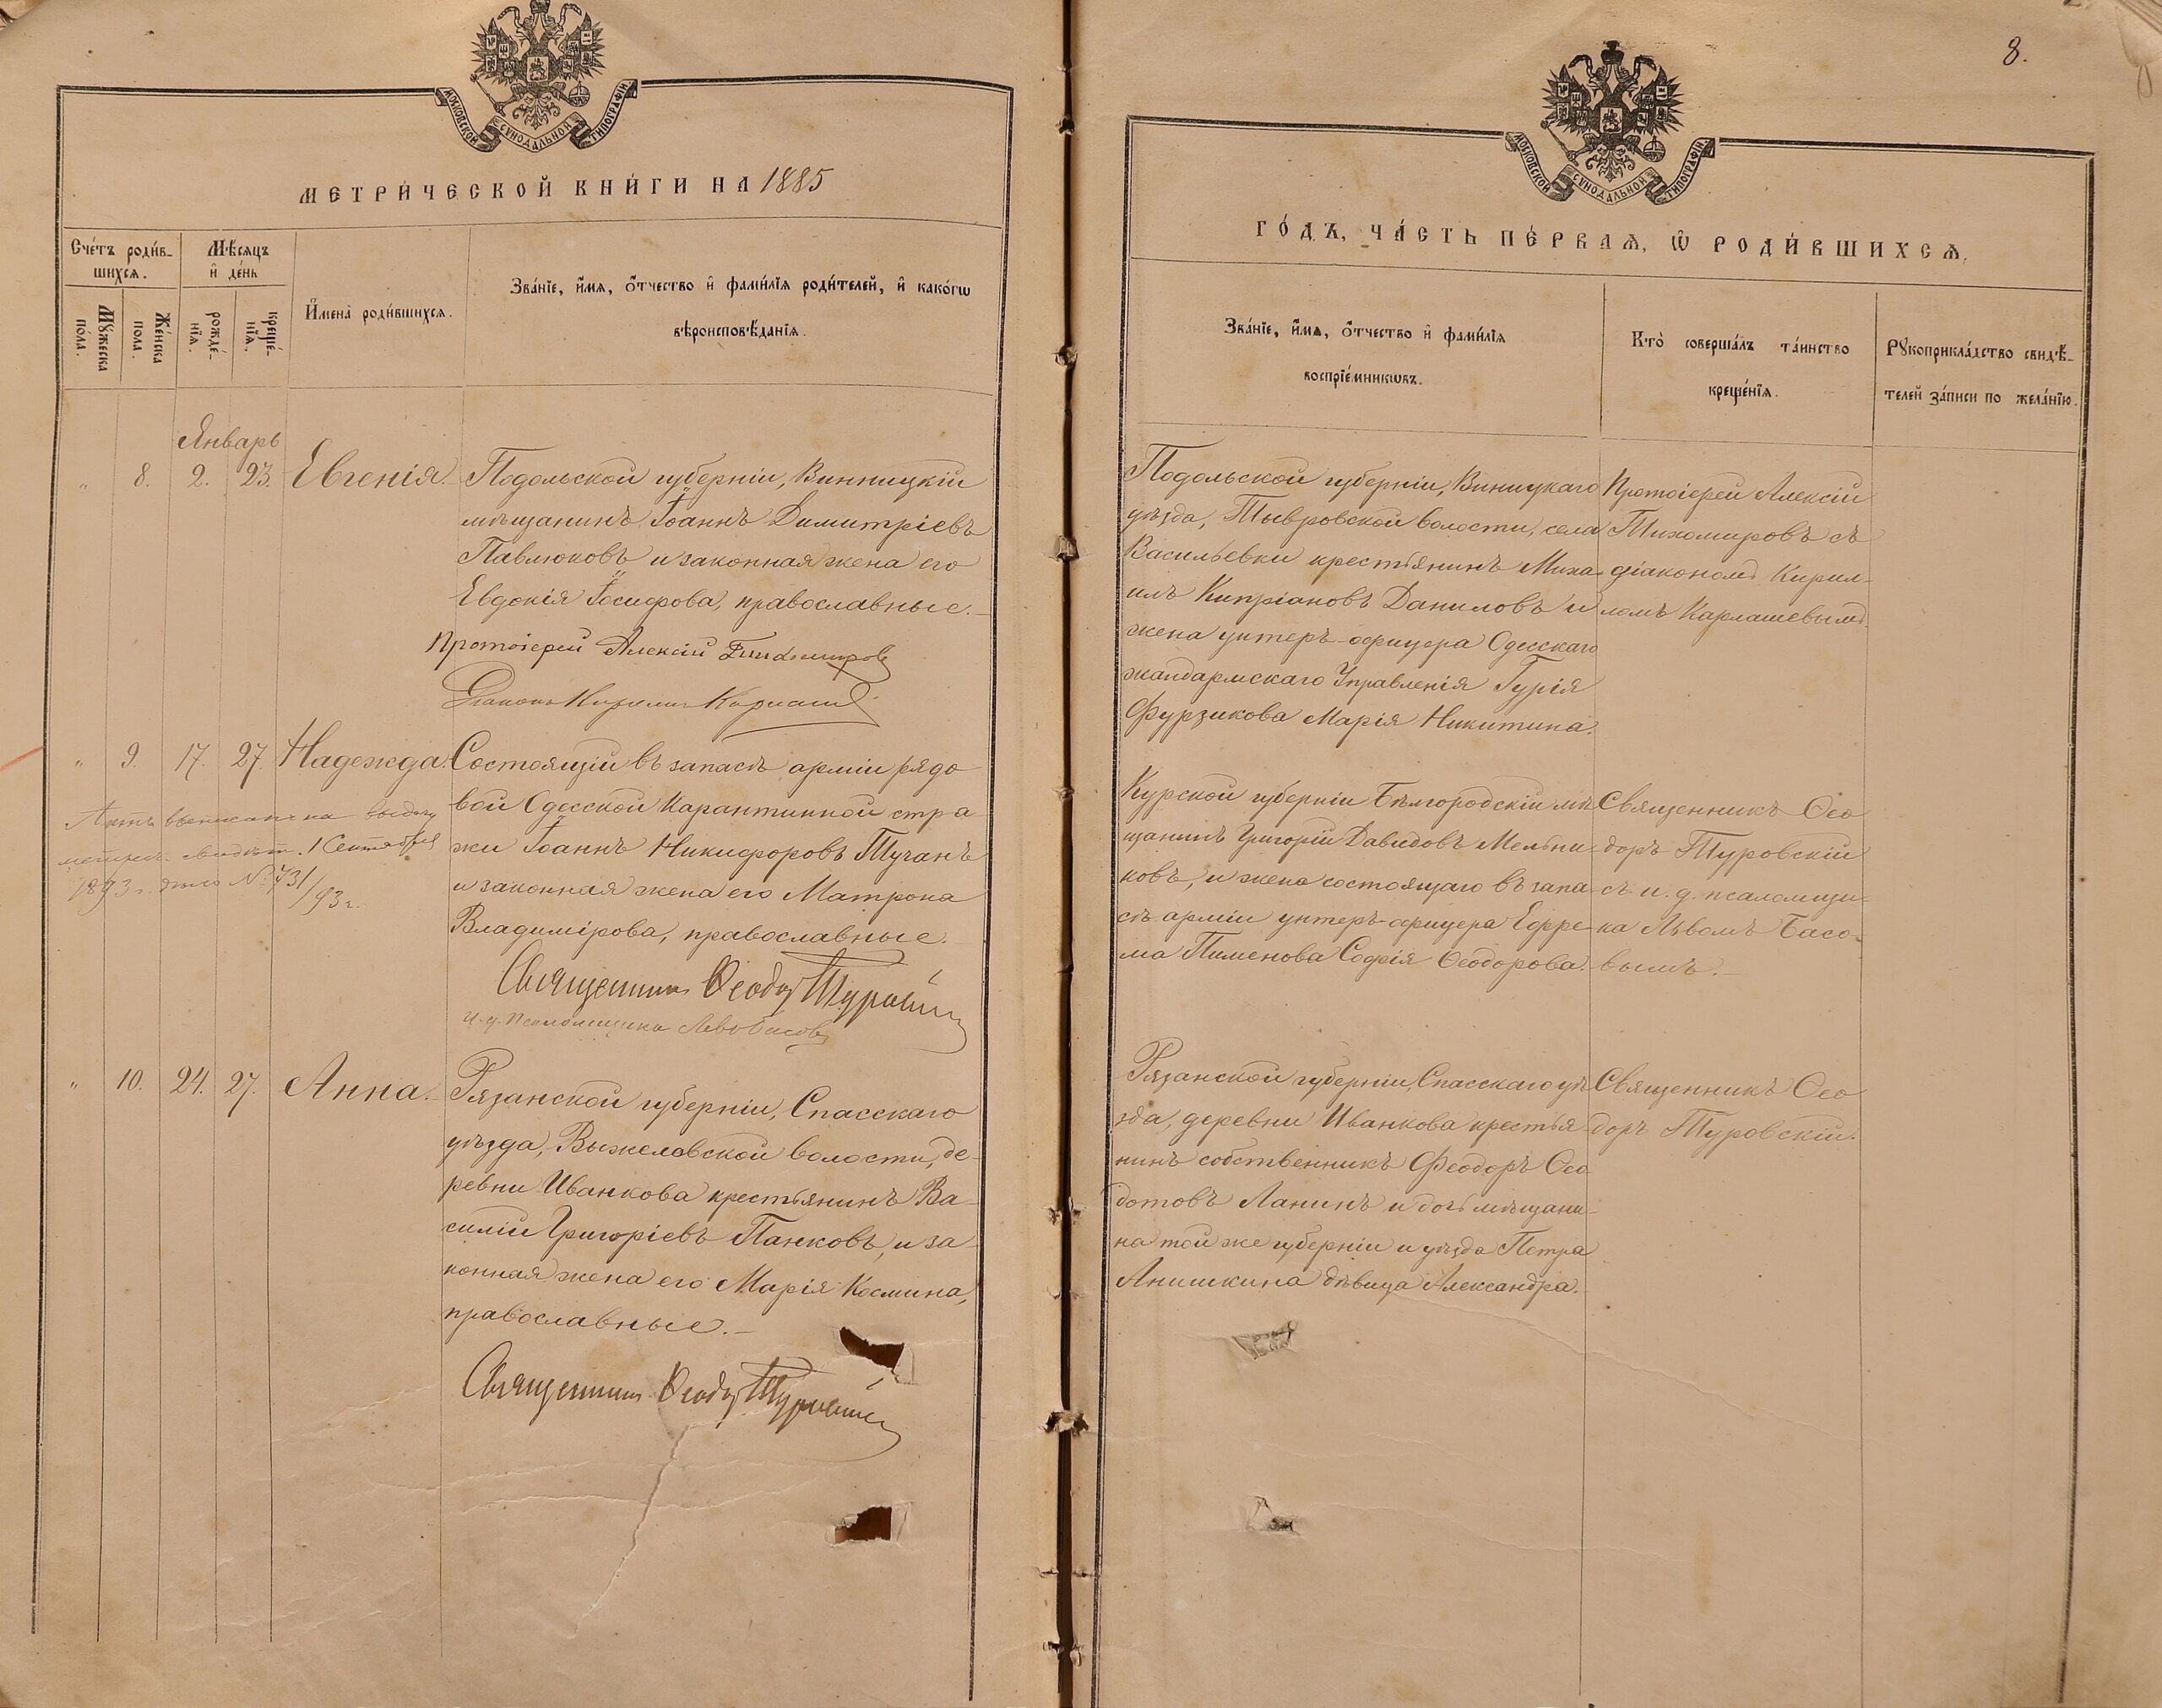 МОСКОВСКОЙ СѴНОДАЛЬНОЙ ТИПОГРАФІИ
МЕТРИ́ЧЕСКОЙ КНИ́ГИ НА 1885
Сче́тъ роди́в-
шихсѧ.
Мꙋ́жеска
по́ла.
Же́нска
пола.
Мѣ́сѧцъ
и҆ де́нь
рожде́-
нїѧ.
креще́-
нїѧ.
И҆́мена̀ роди́вшихсѧ.
Зва́нїе, и҆́мѧ, ѻ҆́тчество и҆ фами́лїѧ роди́телей, и҆ како́гѡ
вѣроисповѣ́данїѧ.
Январь
" 8. 2. 23. Евгенія. Подольской губерніи, Винницкій
мѣщанинъ Іоаннъ Димитріевъ
Павлюковъ и законная жена его
Евдокія Іосифова, православные.
Протоіерей Алексій Тихомировъ
Діаконъ Кириллъ
" 9. 17. 27. Надежда. Состоящій въ запасѣ арміи рядо
вой Одесской Карантинной стра
жи Іоаннъ Никифоровъ Тучанъ
и законная жена его Матрона
Владимірова, православные.
Актъ выписанъ на выдачу
метрич. свидѣт. 1 Сентября
1893 г. дѣло № 731
/93 г.
Священникъ Ѳеодоръ Туровскій
И. д. Псаломщика Левъ Басовъ
" 10. 24. 27. Анна. Рязанской губерніи, Спасскаго
уѣзда, Выжелевской волости, де-
ревни Иванкова крестьянинъ Ва-
силій Григоріевъ Панковъ, и за
конная жена его Марія Космина,
православные.
Священникъ Ѳеодоръ Туровскій
8.
МОСКОВСКОЙ СѴНОДАЛЬНОЙ ТИПОГРАФІИ
ГО́ДЪ, ЧА́СТЬ ПЕ́РВАѦ, Ѽ РОДИ́ВШИХСѦ.
Зва́нїе, и҆́мѧ, ѻ҆́тчество и҆ фами́лїѧ
воспрїе́мникѡвъ.
Кто̀ соверша́лъ та́инство
креще́нїѧ.
Рꙋкоприкла́дство свидѣ́-
телей за́писи по жела́нїю.
Подольской губерніи, Виницкаго
уѣзда, Тывровской волости, села
Васильевки крестьянинъ Миха-
илъ Кипріановъ Даниловъ и
жена унтеръ-офицера Одесскаго
жандармскаго Управленія Гурія
Фурзикова Марія Никитина.
Протоіерей Алексій
Тихомировъ съ
діакономъ Кирил-
ломъ Карлашевымъ.
Курской губерніи Бѣлгородскій мѣ
щанинъ Григорій Давидовъ Мельни-
ковъ, и жена состоящаго въ запа-
сѣ арміи унтеръ-офицера Ефре-
ма Пименова Софія Ѳеодорова.
Священникъ Ѳео
доръ Туровскій
съ и. д. псаломщи-
ка Львомъ Басо-
вымъ.
Рязанской губерніи, Спасскаго уѣ
зда, деревни Иванкова крестья-
нинъ собственникъ Феодоръ Ѳео
дотовъ Ланинъ и дочь мѣщани-
на той же губерніи и уѣзда Петра
Анишкина дѣвица Александра.
Священникъ Ѳео
доръ Туровскій.